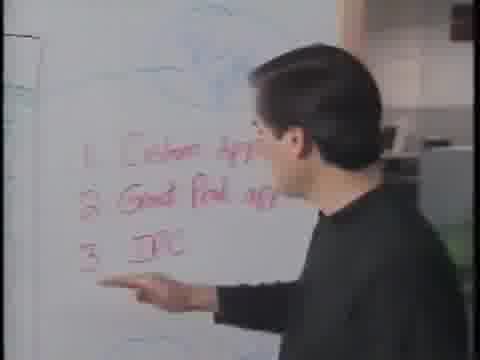 1 Custom App
2 Great Prod. app
3 IPC